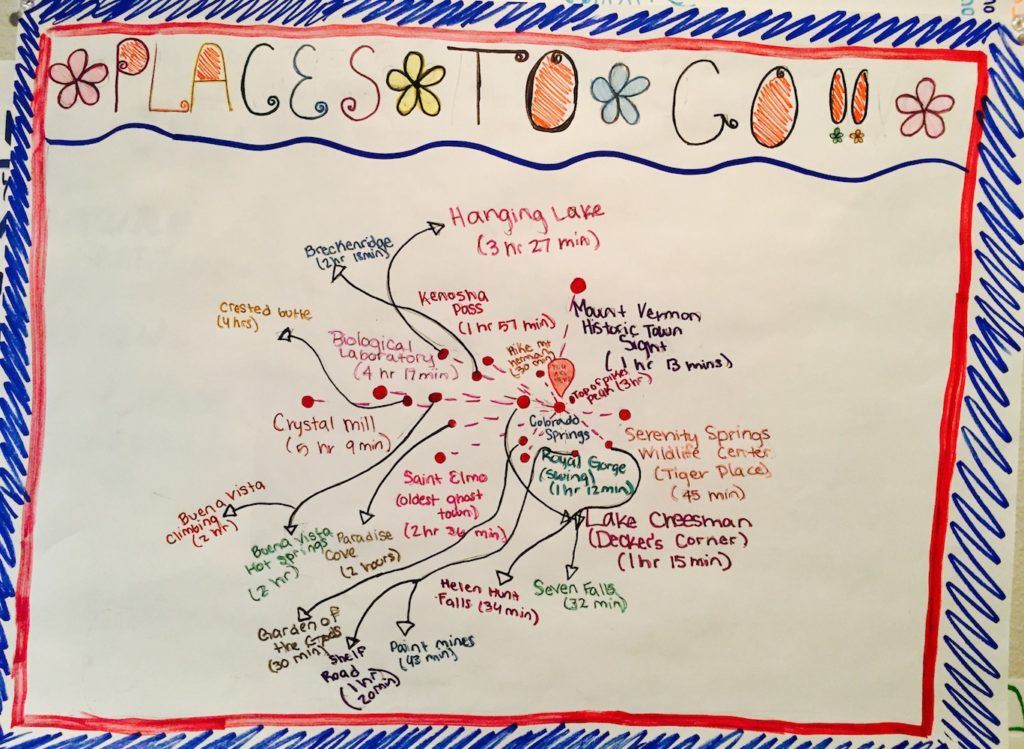 PLACES TO GO!!
Hanging Lake
(3 hr 27 min)
Breckenridge
(2hr 18min)
Kenosha
Pass
(1 hr 57 min)
Mount Vermon
Historic Town
Sight
(1 hr 13 mins)
Crested butte
(4hrs)
Biological
Laboratory
(4 hr 17min)
Hike mt
herman
(30 min)
YOU
ARE
HERE
Top of pikes
peak (3hr)
Crystal mill
(5 hr 9min)
Colorado
Springs
Serenity Springs
Wildlife Center
(Tiger Place)
(45 min)
Royal Gorge
(swing)
(1hr 12min)
Saint Elmo
(oldest ghost
town)
(2hr 36 min)
Lake Cheesman
(Decker's Corner)
(1hr 15min)
Buena Vista
Climbing
(2 hr)
Buena Vista
Hot Springs
(2 hr)
Paradise
Cove
(2 hours)
Helen Hunt
Falls (34min)
Seven Falls
(32 min)
Garden of
the Gods
(30 min)
Shelf
Road
(1 hr
20min)
Paint mines
(43 min)